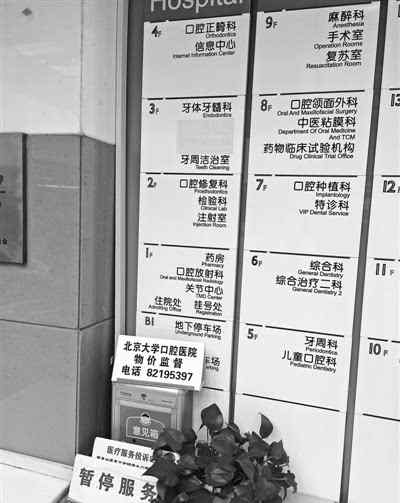 Hospital
4F
口腔正畸科
Orthodontics
信息中心
Internet Information Center
3F
牙体牙髓科
Endodontics
牙周洁治室
Teeth Cleaning
2F
口腔修复科
Prosthodontics
检验科
Clinical Lab
注射室
Injection Room
1F
药房
Pharmacy
口腔放射科
Oral and Maxillofacial Radiology
关节中心
TMD Center
住院处 挂号处
Admitting Office Registration
B1
地下停车场
Underground Parking
车场
Parking
9F
麻醉科
Anesthesia
手术室
Operation Rooms
复苏室
Resuscitation Room
8F
口腔颌面外科
Oral And Maxillofacial Surgery
中医粘膜科
Department Of Oral Medicine
And TCM
药物临床试验机构
Drug Clinical Trial Office
7F
口腔种植科
Implantology
特诊科
VIP Dental Service
6F
综合科
General Dentistry
综合治疗二科
General Dentistry 2
5F
牙周科
Periodontics
儿童口腔科
Pediatric Dentistry
13
12
11F
10F
北京大学口腔医院
物价监督
电话 82195397
意见箱
医疗服务投诉
暂停服务